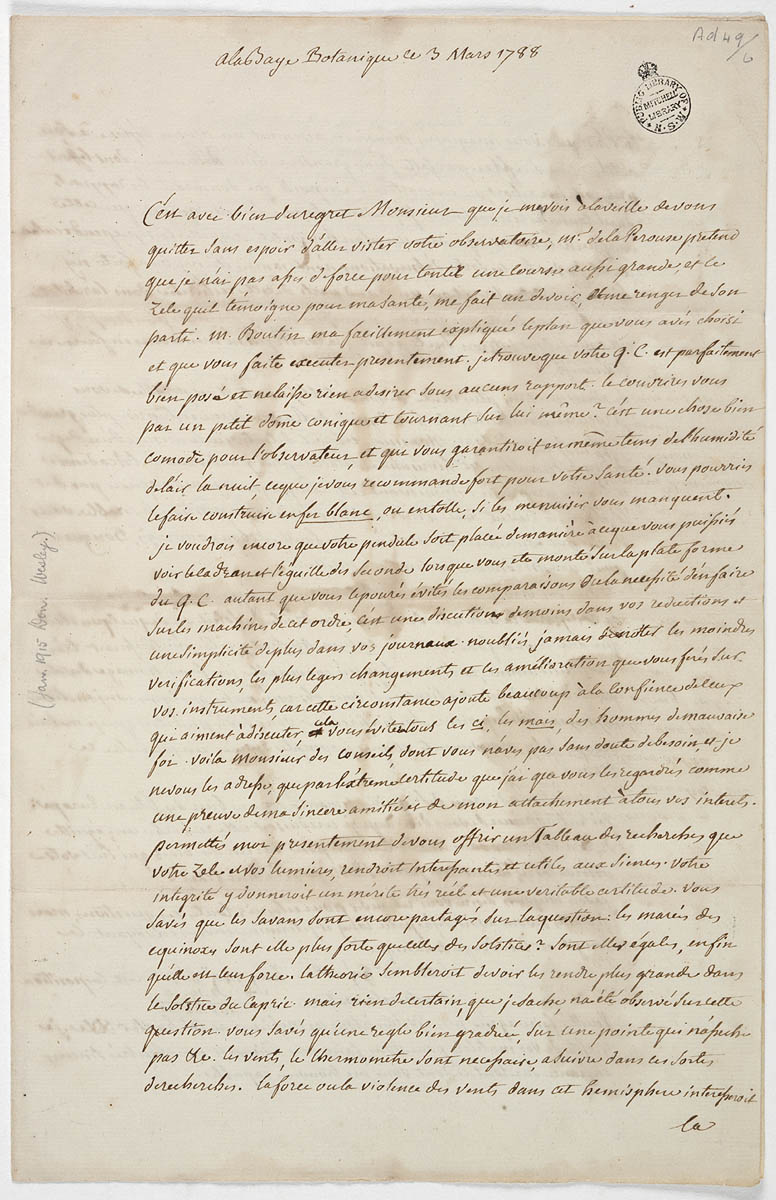 Ad 49/6
a la Baye Botanique ce 3 Mars 1788
PUBLIC LIBRARY OF N.S.W.
MITCHELL LIBRARY
C'est avec bien du regret Monsieur que je me vois à la veille de vous
quitter sans espoir d'aller vister votre observatoire, mr. de la Perouse pretend
que je n'ai pas assés de force pour tenter une course aussi grande, et le
Zele qu'il témoigne pour ma santé, me fait un devoir, de me renger de son
parti. m. Boutin ma facillement expliqués le plan que vous avés choisi
et que vous faite executer presentement. je trouve que votre Q. C. est parfaitement
bien posé et ne laisse rien a desirer sous aucuns rapport. le couvrires vous
par un petit dôme conique et tournant sur lui même? c'est une chose bien
comode pour l'observateur et qui vous garantiroit en même tems de l'humidité
de l'air la nuit, ce que je vous recommande fort pour votre santé. vous pourriés
le faire construire en fer blanc, ou en tolle, si les menuisier vous manquent.
je voudrois encore que votre pendule soit placée de maniére à ce que vous puissiés
voir le cadran et l'éguille des seconde lorsque vous ete monté sur la plate forme
du Q. C. autant que vous le pourés évités les comparaisons ou la necessité d'en faire
sur les machines de cet ordre, c'est une discution de moins dans vos reductions et
une simplicité de plus dans vos journaux. n'oubliés jamais de noter les moindres
verifications, les plus legers changements et les amélioration que vous ferés sur
vos instruments, car cette circonstance ajoute beaucoup à la confience de ceux
qui aiment à discuter, cela vous évitera tous les ci, les mais, des hommes de mauvaise
foi. voila monsieur des conseils, dont vous n'avés pas sans doute de besoin, et je
ne vous les adresse, que par l'éxtreme certitude que j'ai que vous les regardrés comme
une preuve de ma sincere amitié et de mon attachement à tous vos interets.
permettés moi presentement de vous offrir un Tableau des recherches que
votre zele et vos lumiéres, rendroit Interessants et utiles aux sienses. votre
integrité y donneroit un mérite trés réel et une veritable certitude. vous
savés que les savans sont encore partagés sur la question: les marées des
equinoxes sont elle plus forte que celles des solstice? sont elles égales, enfin
qu'elle est leur force. la théorie sembleroit devoir les rendre plus grande dans
le solstice du Capric. mais rien de certain, que je sache, n'a été observé sur cette
question. vous savés qu'une regle bien graduée, sur une pointe qui n'asseche
pas &e. les vents, le thermometre sont necessaire, a suivre dans ces sortes
de recherches. la force ou la violence des vents dans cet hemisphere interesseroit
la
(Jan. 1915 Don. Wesley.)